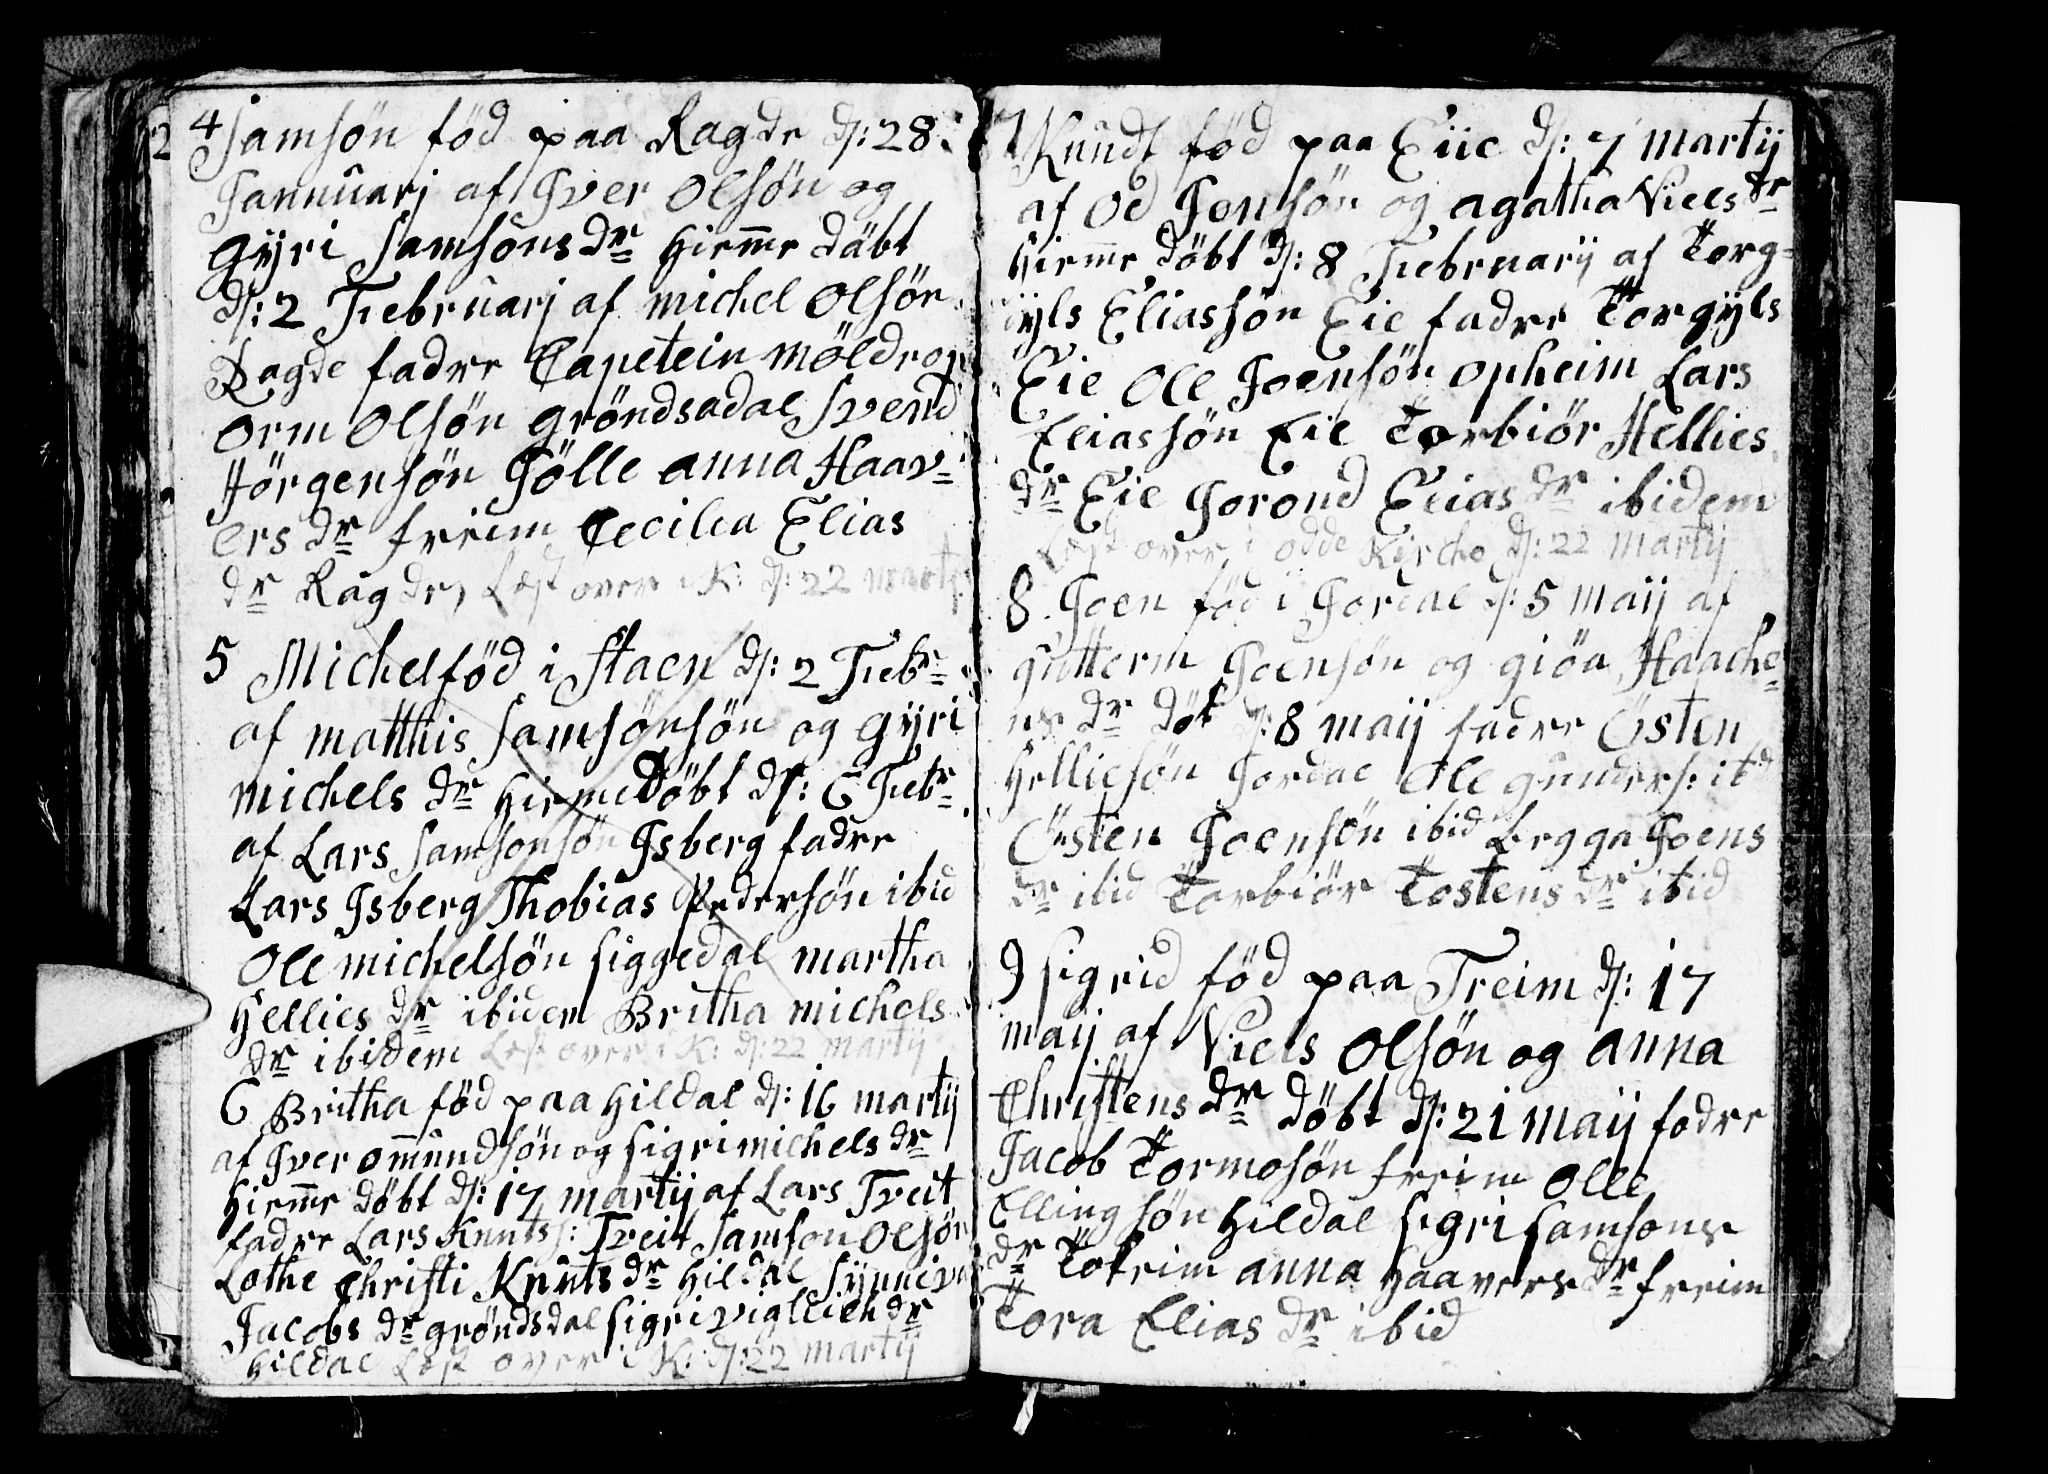 4 Samsön föd paa Ragde d: 28
Jannuarj af Iver Olsön og
Gyri Samsöns dr hiemme däbt
d: 2 Febrüarj af michel Olsön
Ragde fadre Capetein möldrop
Orm Olsön gröndsadal Svend
Hörgensön Jölle anna Haav=
ers dr freim Cecilia Elias
dr Ragde, Læst over i K: d: 22 martij
5 Michel föd i Staen d: 2 Febr
af matthis Samsönsön og gyri
michels dr hieme Döbt d: 6 Febr
af Lars Samsonsön Isberg fadre
Lars Isberg Thobias Pedersön ibid
Ole michelsön siggedal martha
Hellies dr ibidem Britha michels
dr ibidem Læst over i K: d: 22 martij
6 Britha föd paa Hildal d: 16 martij
af Iver omündsön og sigri michels dr
hiemme döbt d: 17 martij af Lars Tveit
fadre Lars Knuts: Tveit Samson Olsön
Lothe Christi Knuts dr Hildal Synniva
Jacobs dr gröndsdal sigri vigleich dr
Hildal Læst over i K: d: 22 martij
7 Knüdt föd paa Eiie d: 7 martij
af Od Jonsön og agatha Niels dr
hiemme döbt d: 8 Februarij af Torg=
yls Eliassön Eie fadre Torgyls
Eie Ole Joensön opheim Lars
Eliassön Eie Torbiör Hellies
dr Eie Jorond Elias dr ibidem
Læst over i odde Kircho d: 22 martij
8. Joen föd i Jordal d: 5 maij af
gutterm Joensön og giöa Haache=
ns dr döt d: 8 maij fadre Östen
Helliesön Jordal Ole gunders: ibd
Östen Joensön ibid Legga Joens
dr ibid Torbiör Tostens dr ibid
9 sigrid föd paa Freim d: 17
maij af Niels Olsön og anna
Christens dr döbt d: 21 maij fadre
Jacob Tormosön freim Olle
Ellingsön Hildal sigri samsons
dr Tokeim anna Haavers dr freim
Tora Elias dr ibid